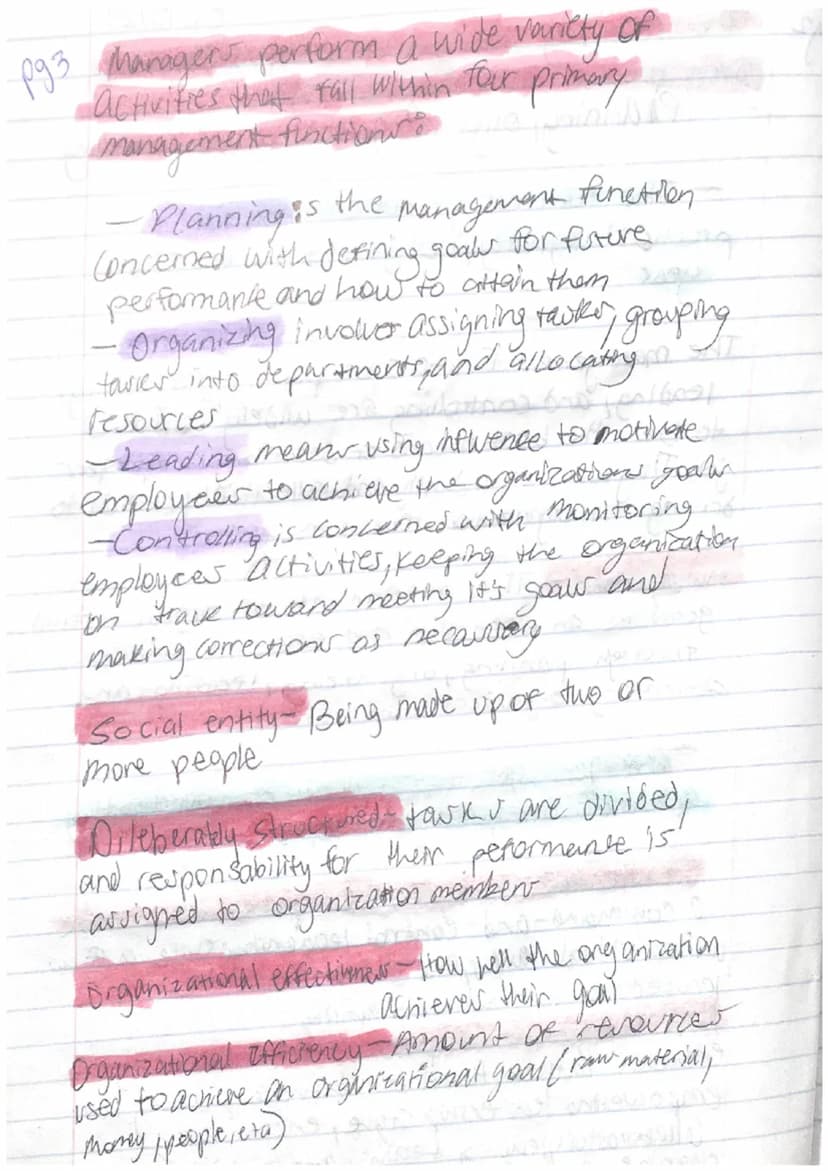 pg3
Managers perform a wide variety of
activities that fall within four primary
management functions:
— Planning is the management function
concerned with defining goals for future
performance and how to attain them
— Organizing involves assigning tasks, grouping
tasks into departments, and allocating
resources
— Leading means using influence to motivate
employees to achieve the organizations goals
— Controlling is concerned with monitoring
employees activities, keeping the organization
on track toward meeting it's goals and
making corrections as necassary
Social entity - Being made up of two or
more people
Dileberably structured - tasks are divided,
and responsability for their peformance is
assigned to organization members
Organizational effectiveness - How well the organization
achieves their goal
Organizational Efficiency - Amount of resources
used to achieve an organizational goal (raw material,
money, people, eta)